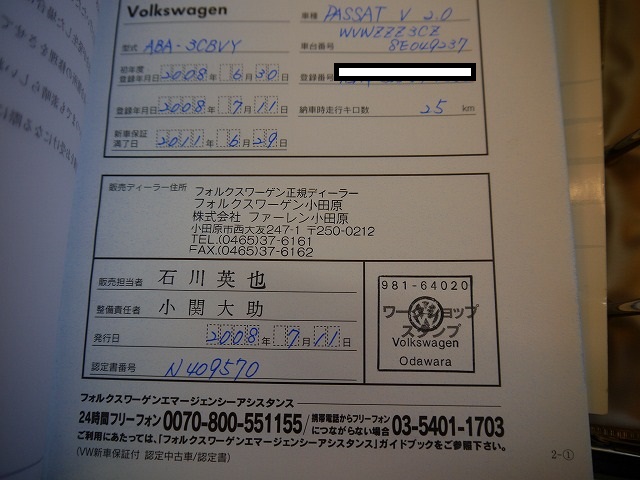 Volkswagen
車種 PASSAT V 2.0
型式 ABA-3CBVY
車台番号 WVWZZZ3CZ
8E049237
初年度
登録年月日 2008年 6月30日
登録番号
登録年月日 2008年 7月11日
納車時走行キロ数 25 km
新車保証
満了日 2011年 6月29日
販売ディーラー住所
フォルクスワーゲン正規ディーラー
フォルクスワーゲン小田原
株式会社 ファーレン小田原
小田原市西大友247-1 〒250-0212
TEL.(0465)37-6161
FAX.(0465)37-6162
販売担当者 石川英也
整備責任者 小関大助
発行日 2008年 7月11日
認定書番号 N409570
981-64020
ワークショップ
スタンプ
Volkswagen
Odawara
フォルクスワーゲンエマージェンシーアシスタンス
24時間フリーフォン 0070-800-551155/携帯電話からフリーフォンにつながらない場合 03-5401-1703
ご利用にあたっては、「フォルクスワーゲンエマージェンシーアシスタンス」ガイドブックをご参照下さい。
(VW新車保証付 認定中古車/認定書)
2-①